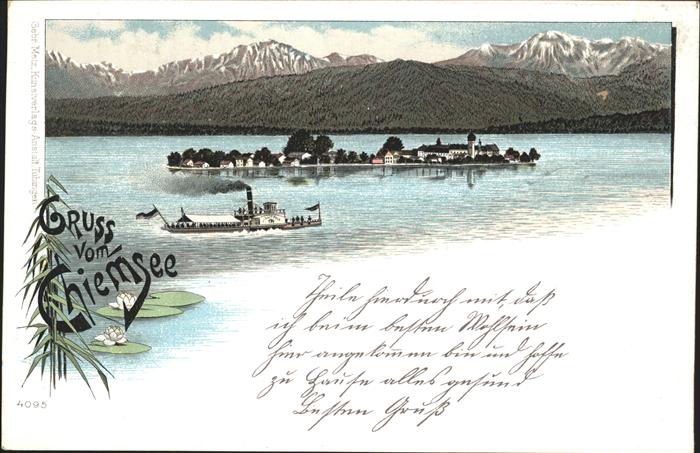 Gebr. Metz, Kunstverlags-Anstalt, Tübingen
Gruss
vom
Chiemsee
4095
Theile hierdurch mit daß
ich beim besten Wohlsein
hier angekommen bin und hoffe
zu Hause alles gesund
Besten Gruß